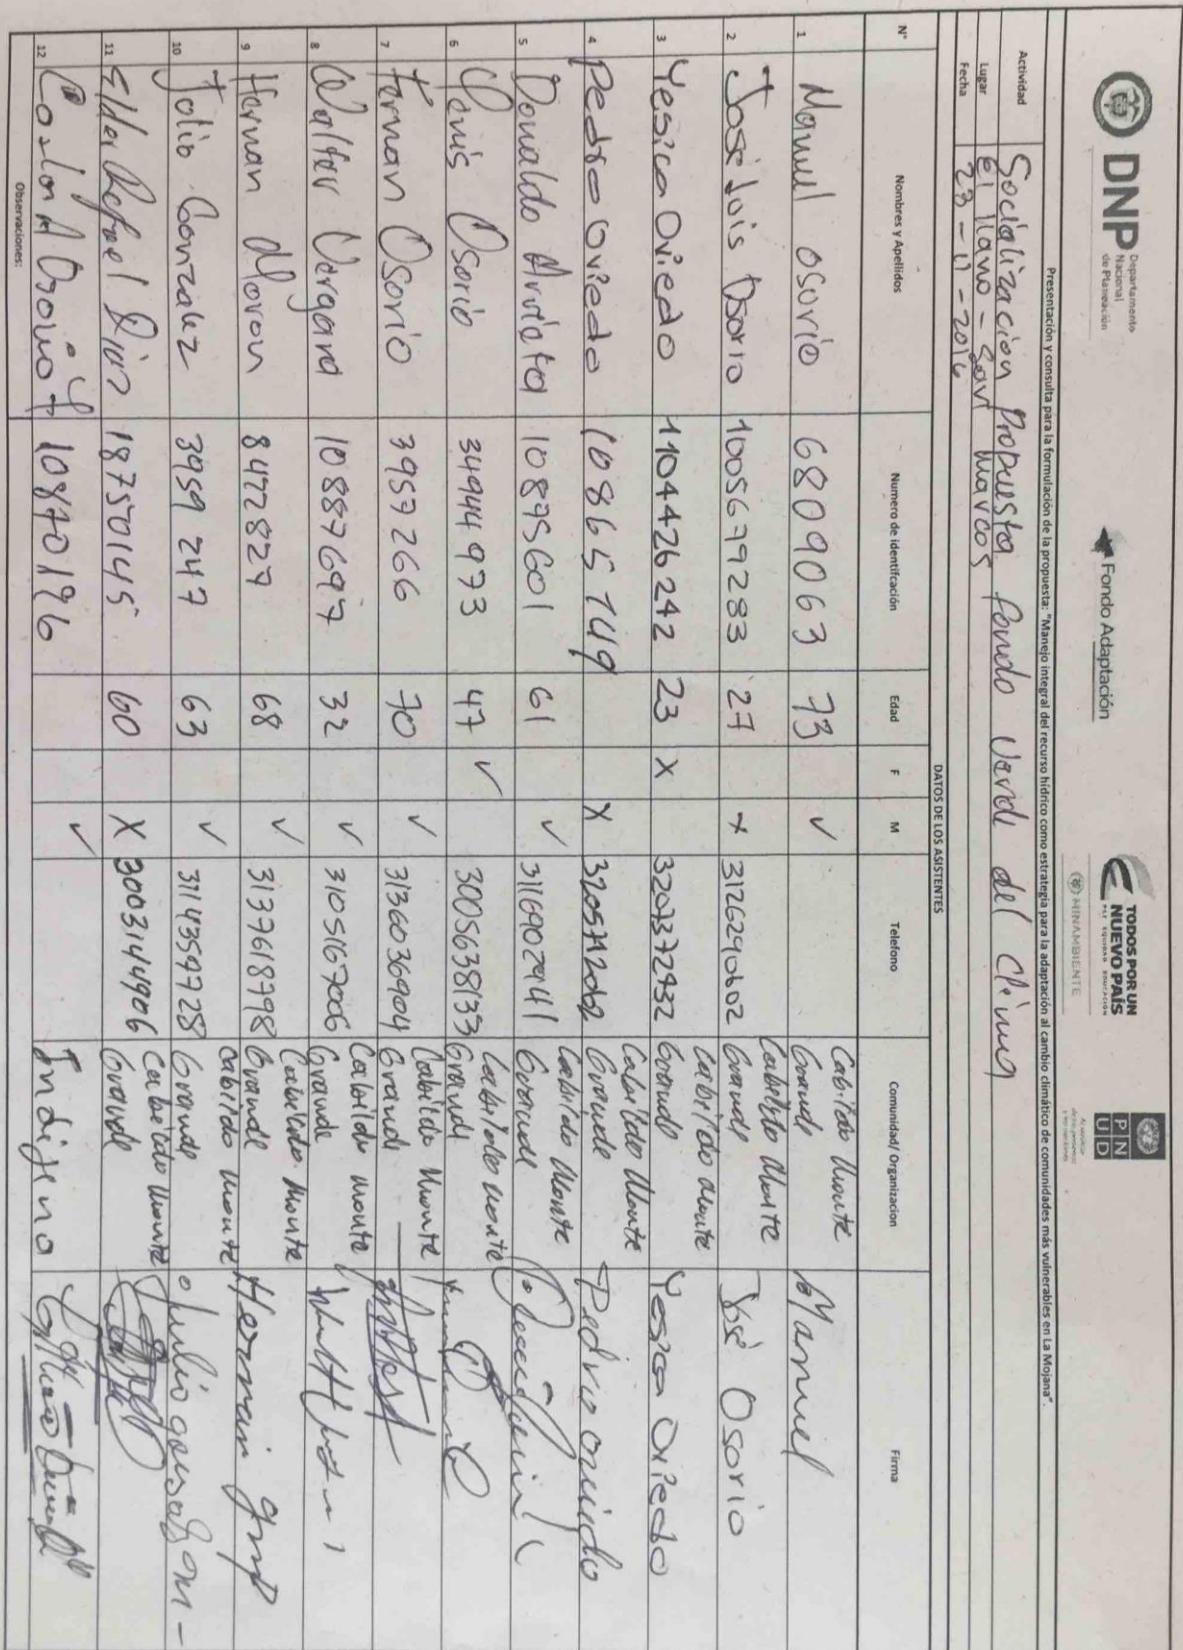 DNP Departamento
Nacional
de Planeación
Fondo Adaptación
TODOS POR UN
NUEVO PAÍS
PAZ EQUIDAD EDUCACIÓN
MINAMBIENTE
PNUD
Presentación y consulta para la formulación de la propuesta: "Manejo integral del recurso hídrico como estrategia para la adaptación al cambio climático de comunidades más vulnerables en La Mojana".
Actividad Socialización Propuesta fondo Verde del Clima
Lugar El llano - San Marcos
Fecha 23 - 11 - 2016
DATOS DE LOS ASISTENTES
N° Nombres y Apellidos Numero de identifcación Edad F M Telefono Comunidad/ Organizacion Firma
1 Manuel osorio 6809063 73 ✓ Cabildo Monte Grande Manuel
2 José Luis Osorio 1005679283 27 x 3126290602 Cabildo Monte Grande José Osorio
3 Yesica Oviedo 1104426242 23 X 3207372932 Cabildo Monte Grande Yesica Oviedo
4 Pedro Oviedo X Cabildo Monte Grande Pedro oviedo
5 Donaldo Arrieta 10875601 61 ✓ 3116902941 Cabildo Monte Grande
6 Osorio 34944973 47 ✓ 3005638133 Cabildo Monte Grande
7 Fernan Osorio 3957266 70 ✓ 3136036904 Cabildo Monte Grande
8 Walter Vergara 108887697 32 ✓ 3105167006 Cabildo Monte Grande
9 Hernan 8472827 68 ✓ 3137618798 Cabildo Monte Grande Hernan
10 Jolio Gonzalez 3959 247 63 ✓ 3114359728 Cabildo Monte Grande Julio
11 Rafael 18750145 60 X 3003144906 Cabildo Monte Grande
12 10870196 ✓ Indijeno
Observaciones: